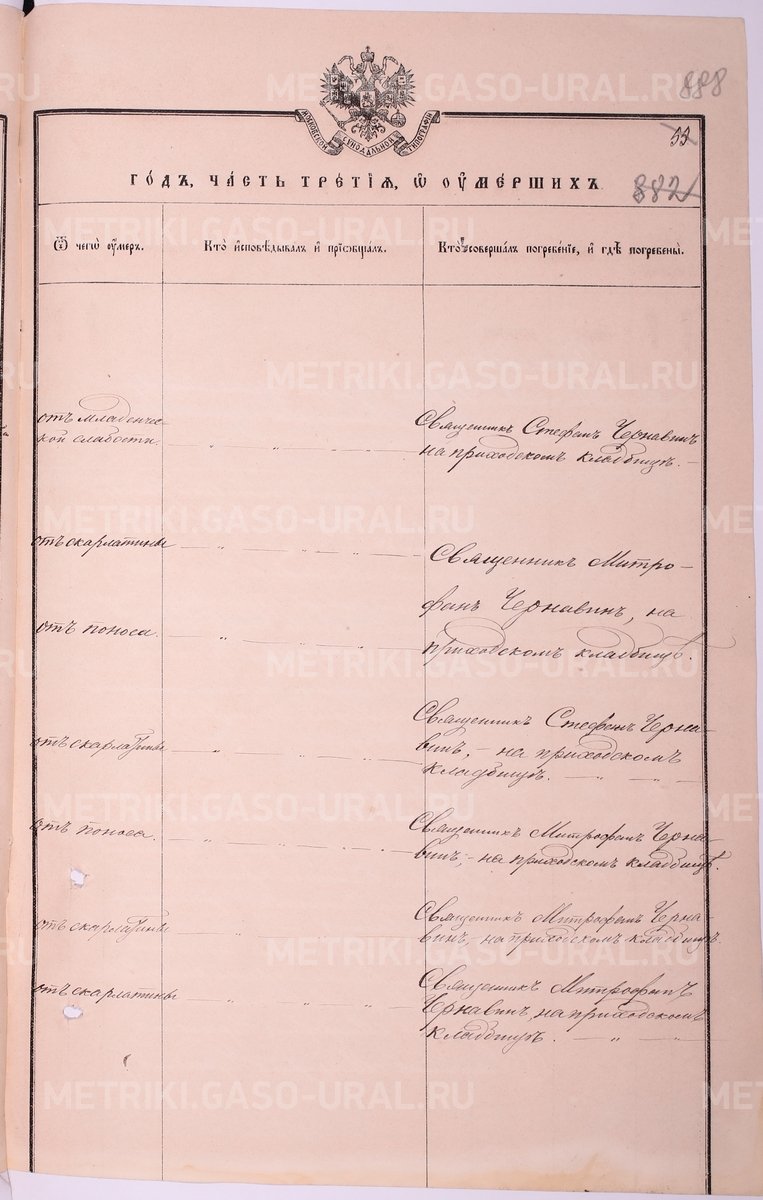 888
МОСКОВСКОЙ СѴНОДАЛЬНОЙ ТИПОГРАФІИ
33
882
ГО́ДЪ, ЧА́СТЬ ТРЕ́ТІѦ, Ѽ ОУМЕ́РШИХЪ
Ѿ чегѡ̀ оу́меръ.
Кто̀ и҆сповѣ́дывалъ и҆ прїѡбща́лъ.
Кто̀ соверша́лъ погребе́нїе, и҆ гдѣ̀ погребены̀.
отъ младенче-
ской слабости.
Священникъ Стефанъ Чернавинъ
на приходскомъ кладбищѣ. –
отъ скарлатины
Священникъ Митро-
фанъ Чернавинъ, на
отъ поноса.
приходскомъ кладбищѣ.
отъ скарлатины
Священникъ Стефанъ Черна-
винъ, - на приходскомъ
кладбищѣ.
отъ поноса.
Священникъ Митрофанъ Черна-
винъ, - на приходскомъ кладбищѣ.
отъ скарлатины
Священникъ Митрофанъ Черна-
винъ, - на приходскомъ кладбищѣ.
отъ скарлатины
Священникъ Митрофанъ
Чернавинъ, на приходскомъ
кладбищѣ.
METRIKI.GASO-URAL.RU